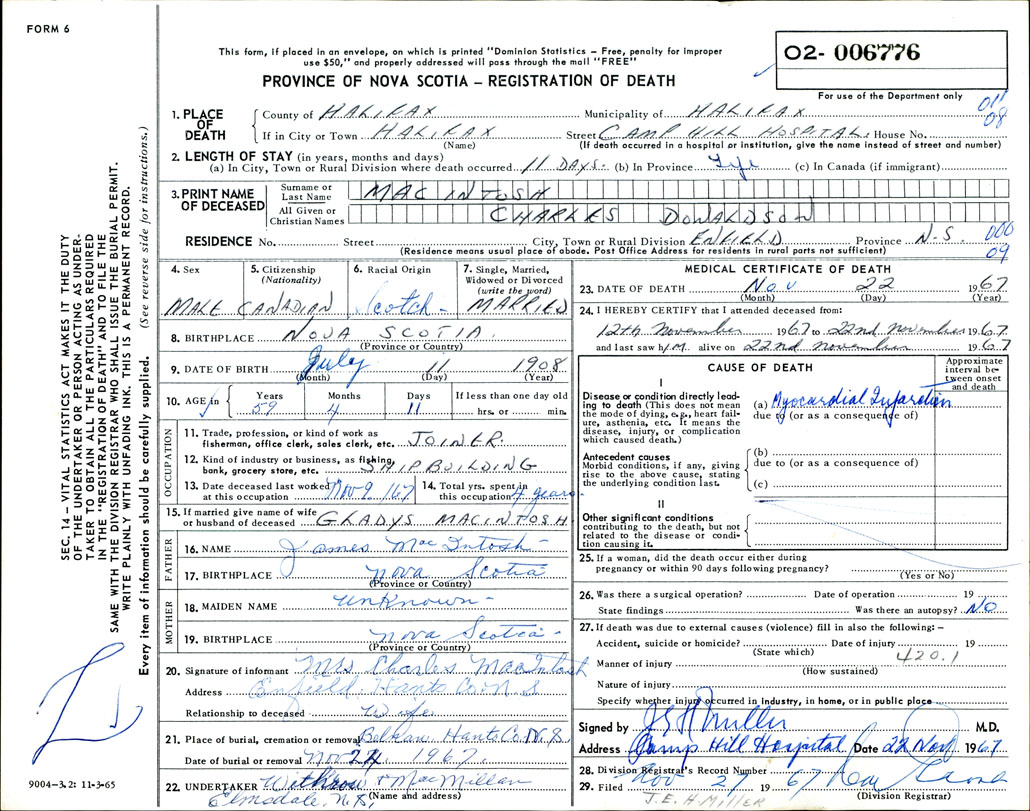 FORM 6
This form, if placed in an envelope, on which is printed "Dominion Statistics – Free, penalty for improper
use $50," and properly addressed will pass through the mail "FREE"
PROVINCE OF NOVA SCOTIA – REGISTRATION OF DEATH
02- 006776
For use of the Department only
011
08
1. PLACE OF DEATH
County of HALIFAX Municipality of HALIFAX
If in City or Town HALIFAX Street CAMP HILL HOSPITAL House No.
(Name) (If death occurred in a hospital or institution, give the name instead of street and number)
2. LENGTH OF STAY (in years, months and days)
(a) In City, Town or Rural Division where death occurred 11 DAYS. (b) In Province Life (c) In Canada (if immigrant)
3. PRINT NAME OF DECEASED
Surname or Last Name MACINTOSH
All Given or Christian Names CHARLES DONALDSON
RESIDENCE No. Street City, Town or Rural Division ENFIELD Province N.S.
000
09
(Residence means usual place of abode. Post Office Address for residents in rural parts not sufficient)
4. Sex
MALE
5. Citizenship (Nationality)
CANADIAN
6. Racial Origin
Scotch
7. Single, Married, Widowed or Divorced (write the word)
MARRIED
8. BIRTHPLACE NOVA SCOTIA.
(Province or Country)
9. DATE OF BIRTH July 11 1908
(Month) (Day) (Year)
10. AGE in Years 59 Months 4 Days 11 If less than one day old hrs. or min.
OCCUPATION
11. Trade, profession, or kind of work as fisherman, office clerk, sales clerk, etc. JOINER
12. Kind of industry or business, as fishing, bank, grocery store, etc. SHIPBUILDING
13. Date deceased last worked at this occupation Nov 9 167
14. Total yrs. spent in this occupation 4 years
15. If married give name of wife or husband of deceased GLADYS MACINTOSH
FATHER
16. NAME James MacIntosh
17. BIRTHPLACE Nova Scotia
(Province or Country)
MOTHER
18. MAIDEN NAME Unknown
19. BIRTHPLACE Nova Scotia
(Province or Country)
20. Signature of informant Mrs Charles MacIntosh
Address Enfield, Hants Co. N.S
Relationship to deceased Wife
21. Place of burial, cremation or removal Hants Co. N.S.
Date of burial or removal Nov 24 1967
22. UNDERTAKER Withrow + MacMillan
(Name and address)
Elmsdale, N.S.
MEDICAL CERTIFICATE OF DEATH
23. DATE OF DEATH Nov 22 1967
(Month) (Day) (Year)
24. I HEREBY CERTIFY that I attended deceased from:
12th November 1967 to 22nd November 1967
and last saw h I.M. alive on 22nd november 1967
CAUSE OF DEATH
Approximate interval between onset and death
I
Disease or condition directly leading to death (This does not mean the mode of dying, e.g., heart failure, asthenia, etc. It means the disease, injury, or complication which caused death.)
(a) Myocardial Infarction
due to (or as a consequence of)
Antecedent causes
Morbid conditions, if any, giving rise to the above cause, stating the underlying condition last.
(b)
due to (or as a consequence of)
(c)
II
Other significant conditions
contributing to the death, but not related to the disease or condition causing it.
25. If a woman, did the death occur either during pregnancy or within 90 days following pregnancy?
(Yes or No)
26. Was there a surgical operation? Date of operation 19
State findings Was there an autopsy? NO
27. If death was due to external causes (violence) fill in also the following: –
Accident, suicide or homicide? Date of injury 19
(State which) 420.1
Manner of injury
(How sustained)
Nature of injury
Specify whether injury occurred in Industry, in home, or in public place
Signed by J E H Miller M.D.
Address Camp Hill Hospital Date 22 Nov 1967
28. Division Registrar's Record Number
29. Filed Nov 27 1967
(Division Registrar)
J.E.H. MILLER
SEC. 14 – VITAL STATISTICS ACT MAKES IT THE DUTY
OF THE UNDERTAKER OR PERSON ACTING AS UNDER-
TAKER TO OBTAIN ALL THE PARTICULARS REQUIRED
IN THE "REGISTRATION OF DEATH" AND TO FILE THE
SAME WITH THE DIVISION REGISTRAR WHO SHALL ISSUE THE BURIAL PERMIT.
WRITE PLAINLY WITH UNFADING INK. THIS IS A PERMANENT RECORD.
Every item of information should be carefully supplied. (See reverse side for instructions.)
9004–3.2: 11-3-65